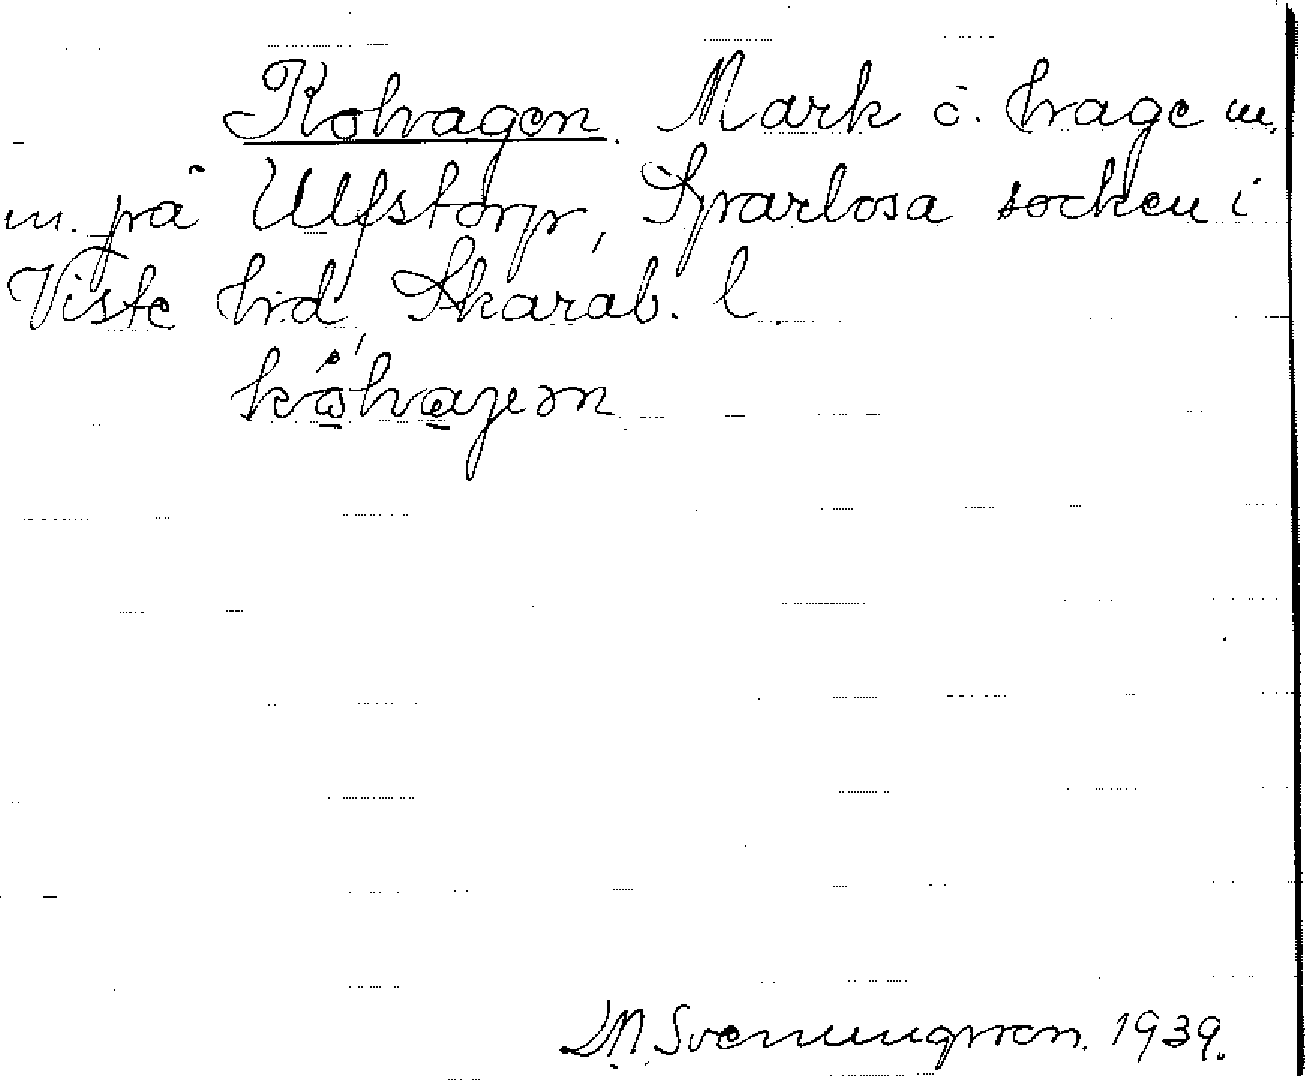 Kohagen. Mark o. hage m.
m. på Ulfstorp, Sparlosa socken i
Viste hrd, Skarab. l.
kohagen
D.N. Svenningsson. 1939.